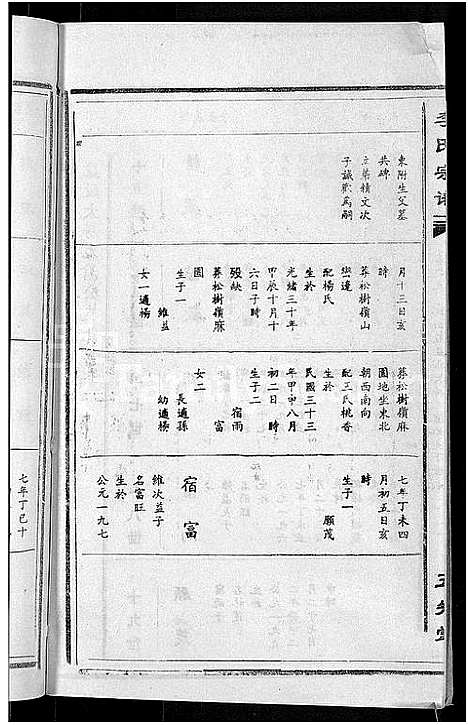 李氏宗譜
東附生父墓
共碑
立第積文次
子誠歡為嗣
月十三日亥
時
葬松樹嶺山
巒邊
配楊氏
生於
光緒三十年
甲辰十月十
六日子時
歿缺
葬松樹嶺麻
園
生子一
維益
女一適楊
葬松樹嶺麻
園地坐東北
朝西南向
配王氏桃香
生於
民國三十三
年甲申八月
初二日 時
生子二
宿雨
富
女二
長適孫
幼適楊
七年丁未四
月初五日亥
時
生子一
願茂
宿富
維次益子
名富旺
生於
公元一九七
七年丁巳十